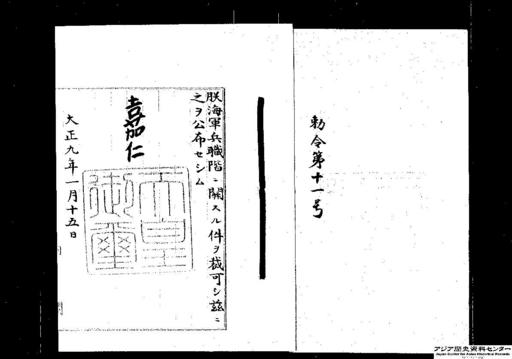 勅令第十一号
朕海軍兵職階ニ関スル件ヲ裁可シ茲ニ
之ヲ公布セシム
嘉仁
天皇
御璽
大正九年一月十五日
アジア歴史資料センター
Japan Center for Asian Historical Records